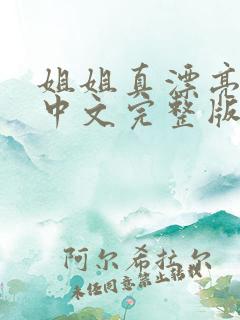 姐姐真漂亮
中文完整版
阿尔希拉尔
未经同意禁止转载